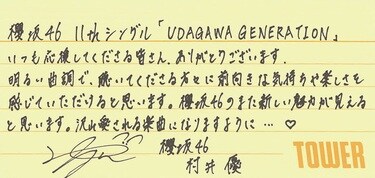 櫻坂46 11thシングル「UDAGAWA GENERATION」
いつも応援してくださる皆さん、ありがとうございます。
明るい曲調で、聴いてくださる方々に前向きな気持ちや楽しさを
感じていただけると思います。櫻坂46のまた新しい魅力が見える
と思います。沢山愛される楽曲になりますように…♡
櫻坂46
村井優
TOWER